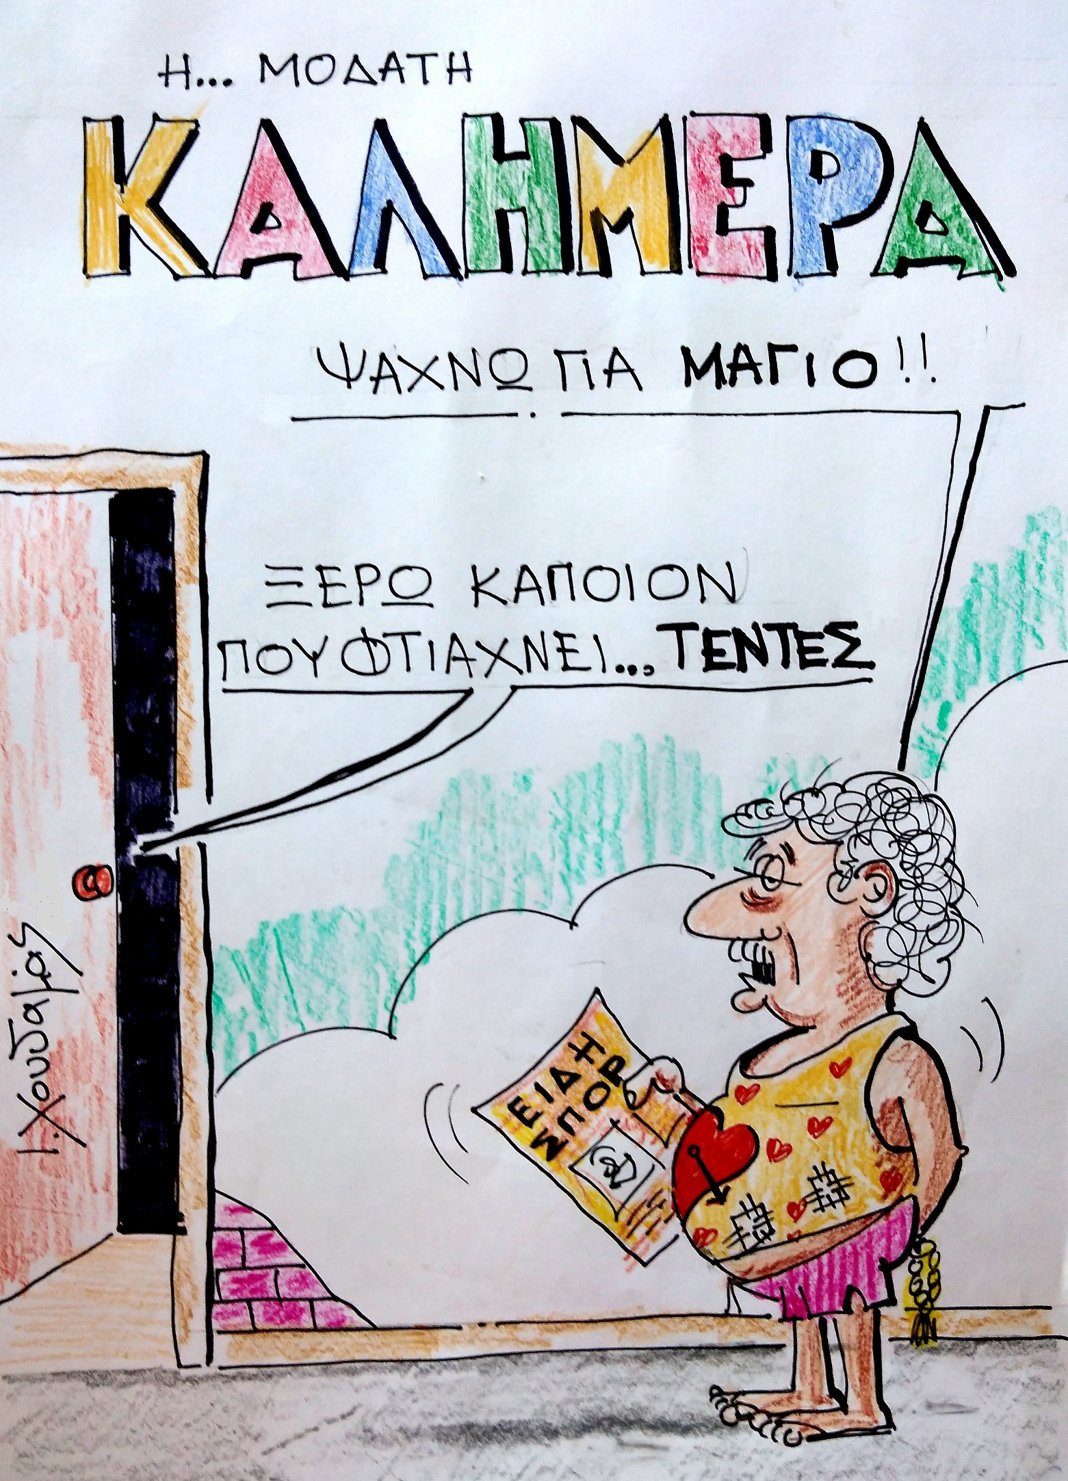 Η... ΜΟΔΑΤΗ
ΚΑΛΗΜΕΡΑ
ΨΑΧΝΩ ΓΙΑ ΜΑΓΙΟ!!
ΞΕΡΩ ΚΑΠΟΙΟΝ
ΠΟΥ ΦΤΙΑΧΝΕΙ... ΤΕΝΤΕΣ
ΕΙΔΗ
ΣΠΟΡ
Ι.Χουδαλάς